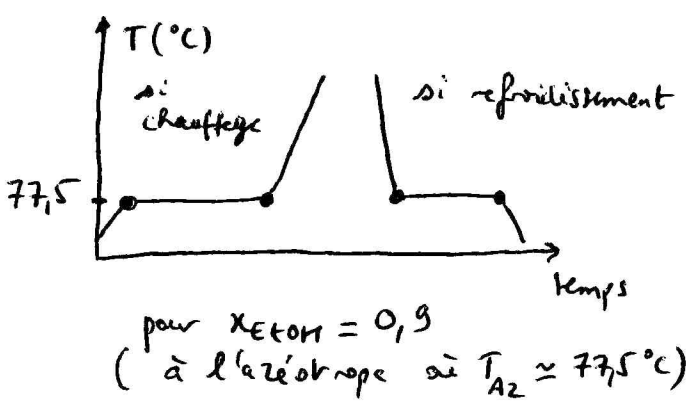 T(°C)
si
chauffage
si refroidissement
77,5
temps
pour xEtOH = 0,9
( à l'azéotrope où TAZ ≃ 77,5°C)